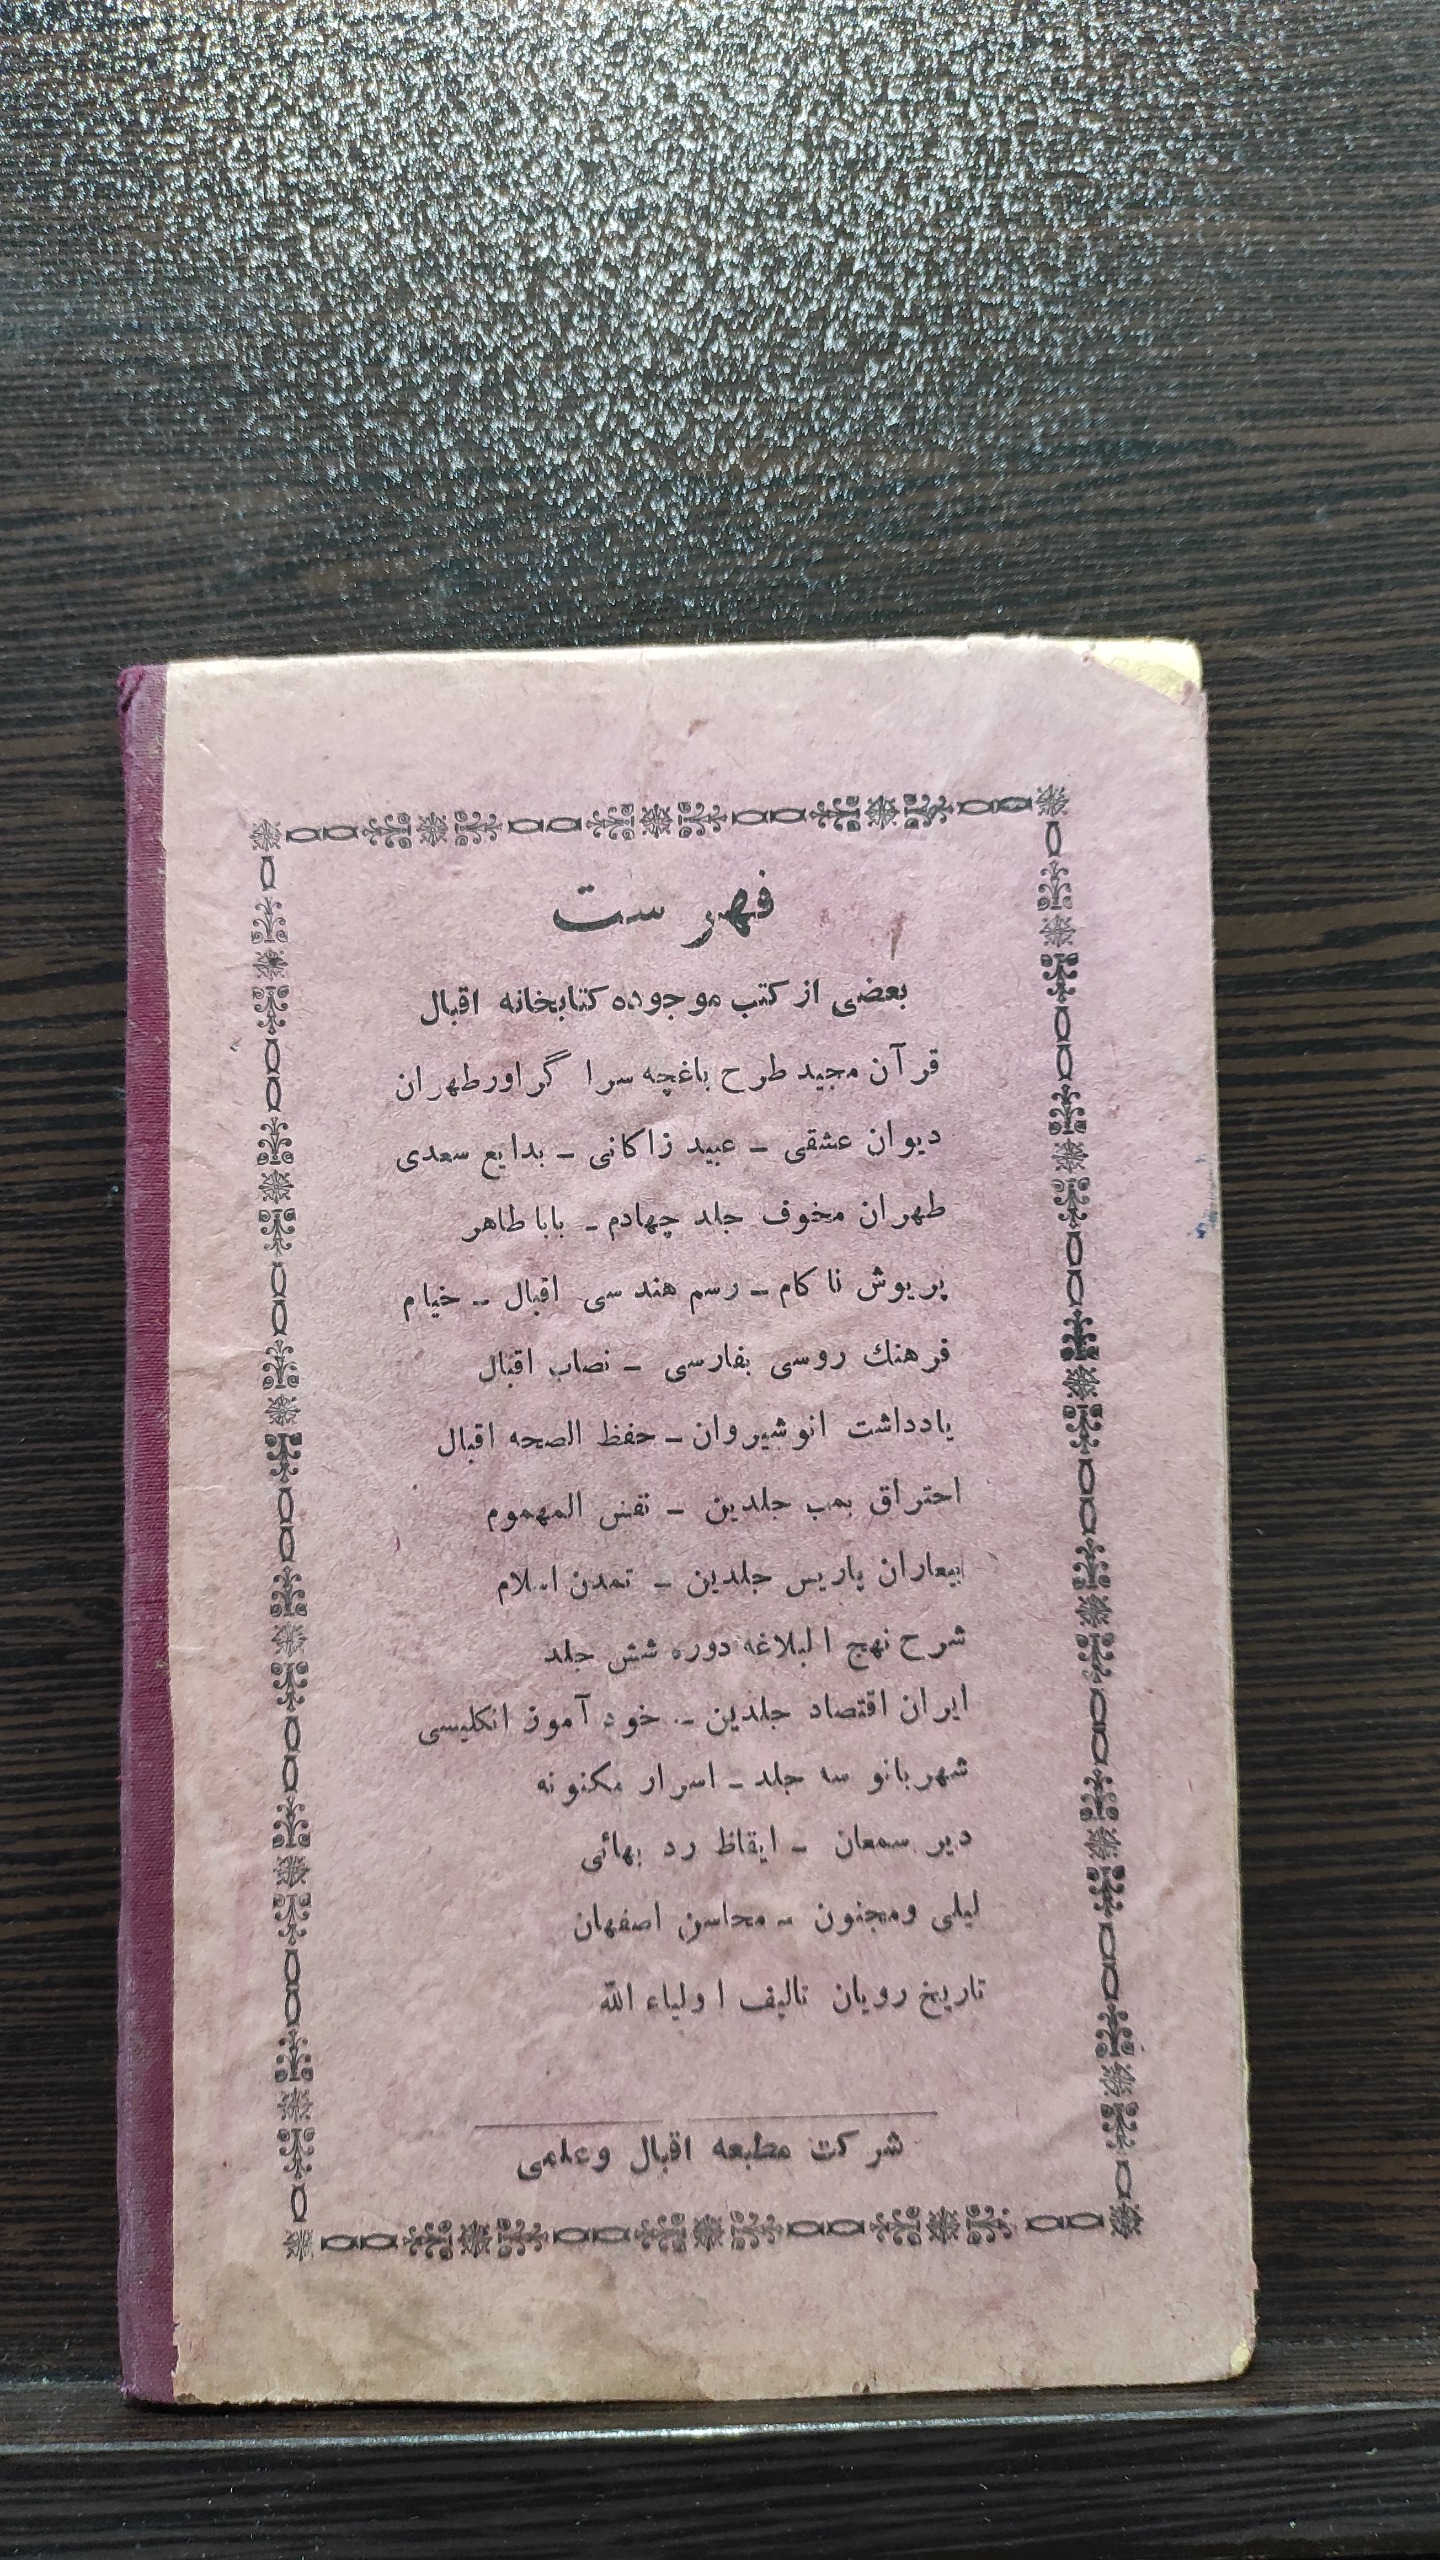 فهرست
بعضی از کتب موجوده کتابخانه اقبال
قرآن مجید طرح باغچه سرا گراور طهران
دیوان عشقی ـ عبید زاکانی ـ بدایع سعدی
طهران مخوف جلد چهادم ـ بابا طاهر
پریوش ناکام ـ رسم هندسی اقبال ـ خیام
فرهنك روسی بفارسی ـ نصاب اقبال
یادداشت انوشیروان ـ حفظ الصحه اقبال
احتراق بمب جلدین ـ نفس المهموم
بیماران پاریس جلدین ـ تمدن اسلام
شرح نهج البلاغه دوره شش جلد
ایران اقتصاد جلدین ـ خود آموز انکلیسی
شهربانو سه جلد ـ اسرار مکنونه
دیر سمعان ـ ایقاظ رد بهائی
لیلی ومجنون ـ محاسن اصفهان
تاریخ رویان تالیف اولیاء الله
شرکت مطبعه اقبال وعلمی